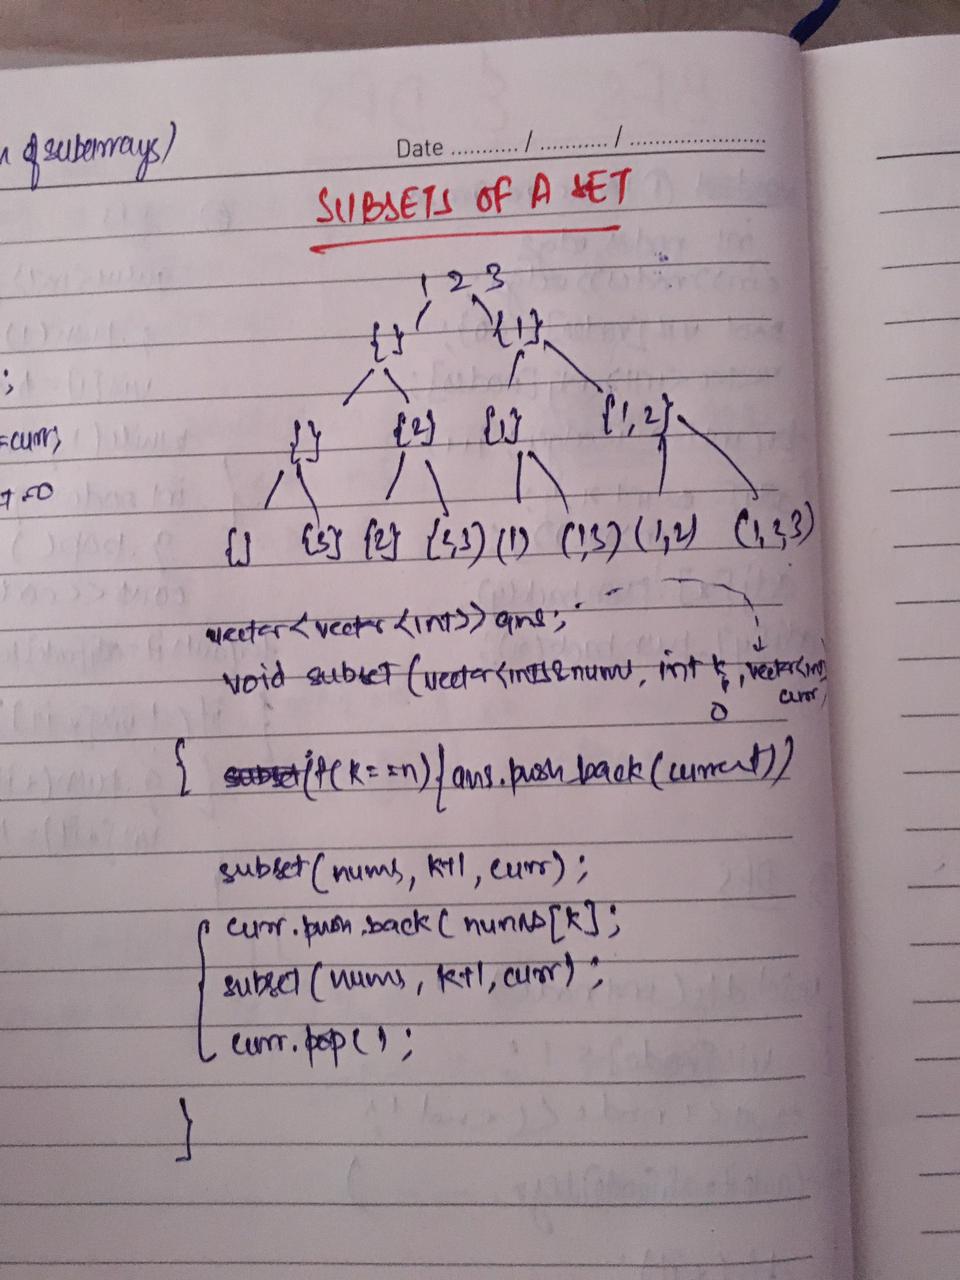 of subarrays)
Date ........... / ............ / ........................
SUBSETS OF A SET
1 2 3
{} {1}
;
{} {2} {1} {1,2}
=curr,
=0
{} {3} {2} (2,3) (1) (1,3) (1,2) (1,2,3)
vector<vector<int>> ans;
void subset (vector<int>&nums, int k, vector<int>
curr,
0
{ subset if(k==n){ans.push_back(current)}
subset(nums, k+1, curr);
curr.push_back(nums[k];
subset(nums, k+1, curr);
curr.pop();
}